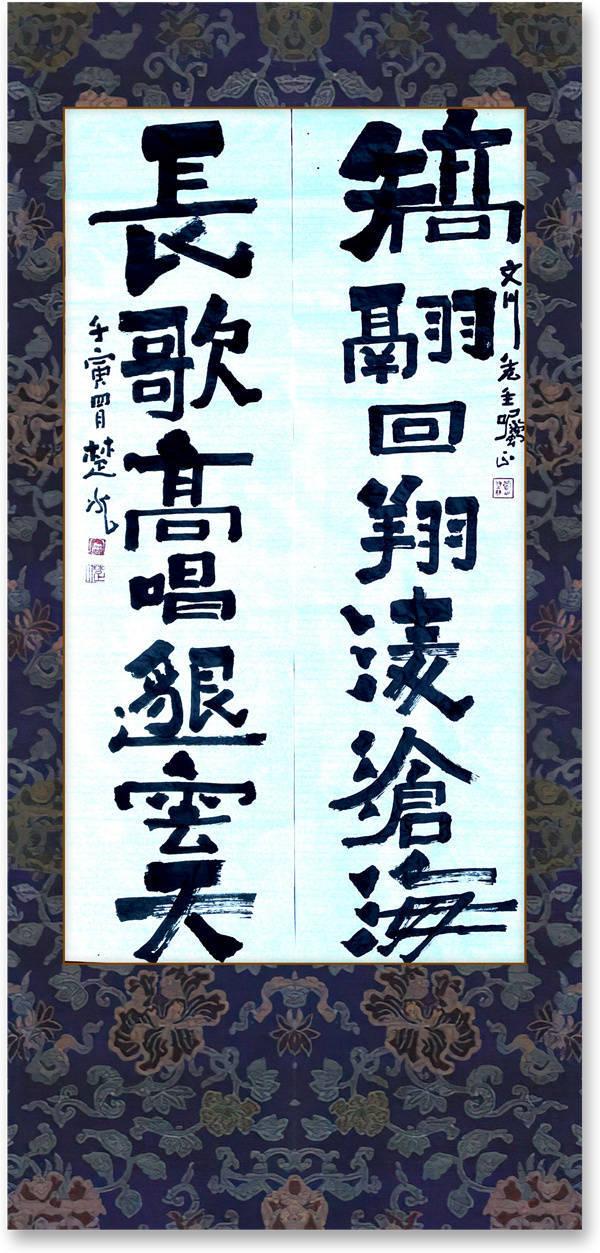 文川先生囑正
矯翮回翔淩滄海
長歌高唱邈雲天
壬寅四月楚